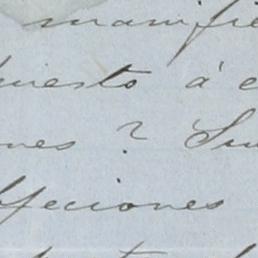 manifie
puesto á c
nes? Su
ffeciones